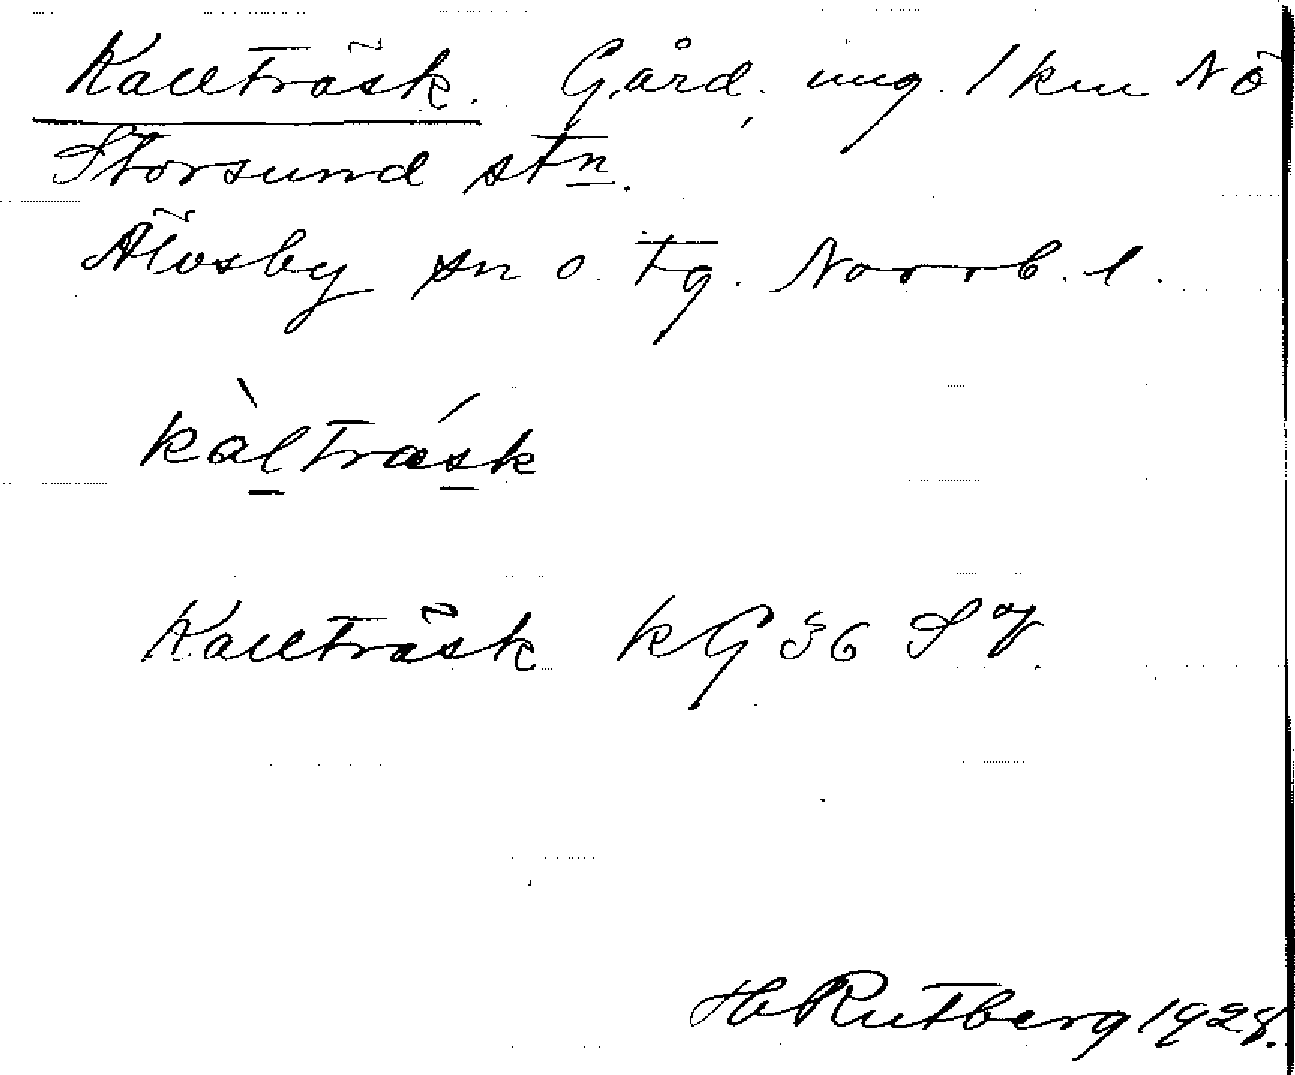 Kallträsk. Gård, ung. 1 km NÖ
Storsund stn.
Älvsby sn o. tg. Norrb. l.
kàlträ́sk
Kallträsk kG 36 SV.
H Rutberg 1928.